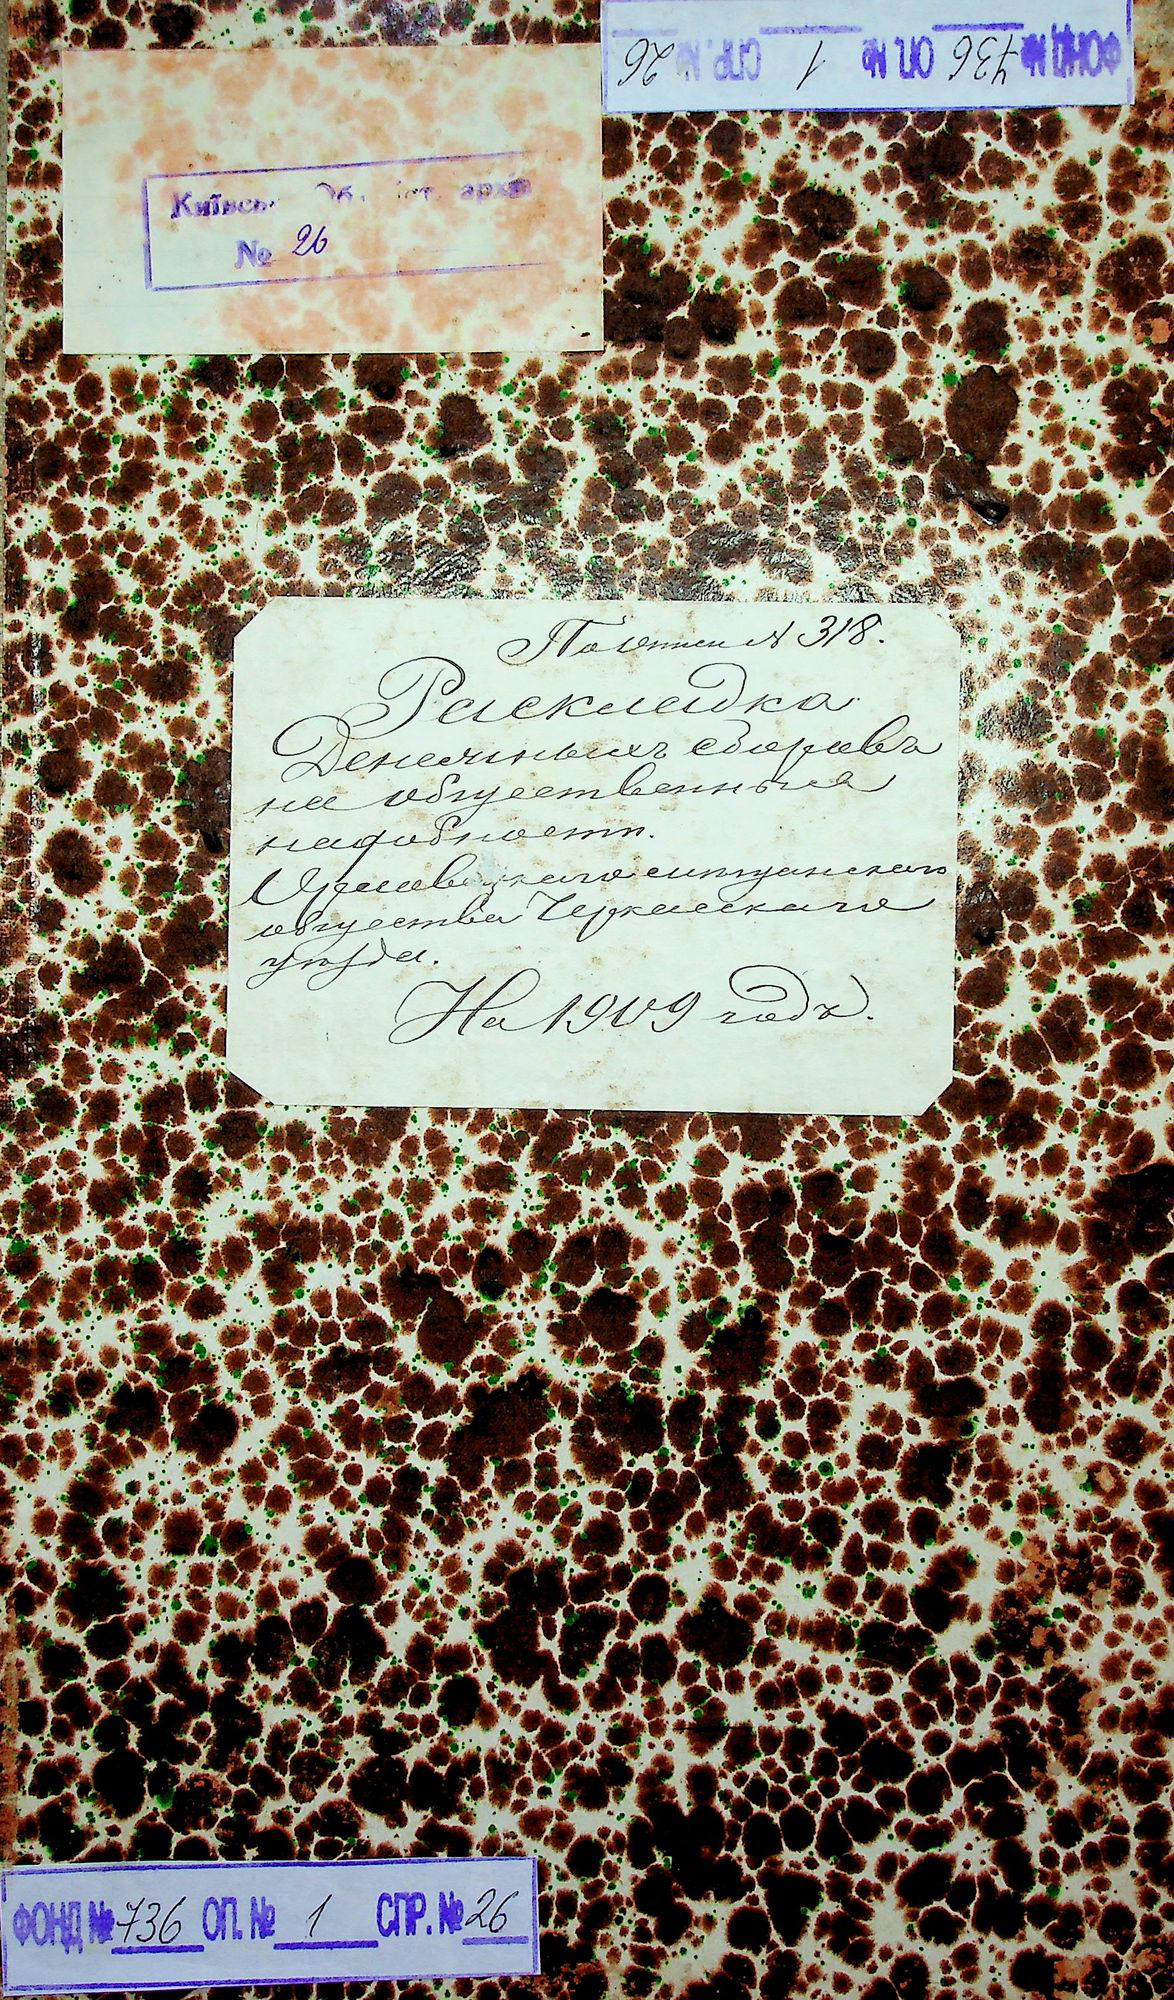 ФОНД № 736 ОП. № 1 СПР. № 26
Київськ. Об. іст. архів
№ 26
По описи № 318.
Раскладка
Денежныхъ сборовъ
на общественныя
надобности.
мещанскаго
общества Черкасскаго
уѣзда.
На 1909 годъ.
ФОНД № 736 ОП. № 1 СПР. № 26